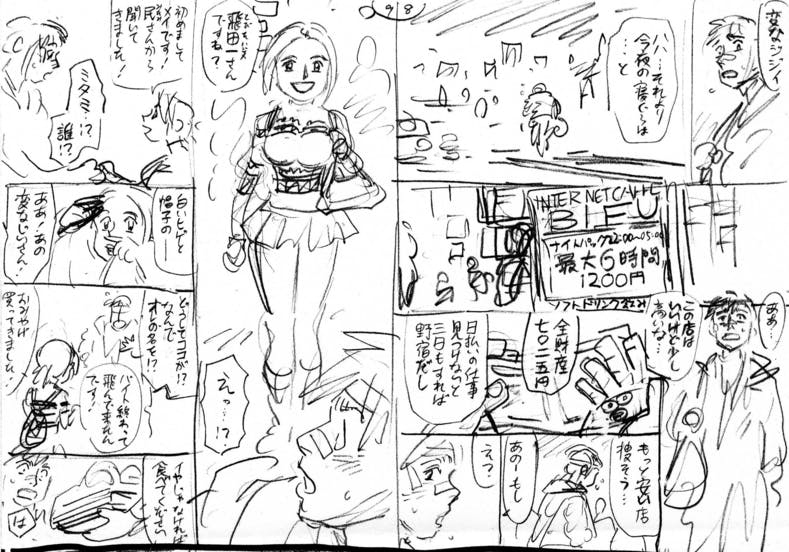 変なジジイ
ハハ…それより
今夜の寝ぐらは
…と
INTERNET CAFE
BLEU
ナイトパック22:00〜05:00
最大6時間
1200円
ソフトドリンク込み
ああ…
この店は
いいけど少し
高いな…
全財産
七〇二五円
日払いの仕事
見つけないと
三日もすれば
野宿だし
もっと安い店
探そう…
あのーもし
えっ…
98
飛田一さん
ですね?
えっ…!?
初めまして
メイです!
民さんから
聞いて
きました!
ミタミ…!?
誰!?
白いヒゲと
帽子の―
ああ!あの
変なじいさん!
どうしてココが!?
なんで
オレの名を!?
バイト終わって
飛んで来たん
です!
おみやげ
買ってきました!
イヤじゃなければ
食べてください
は